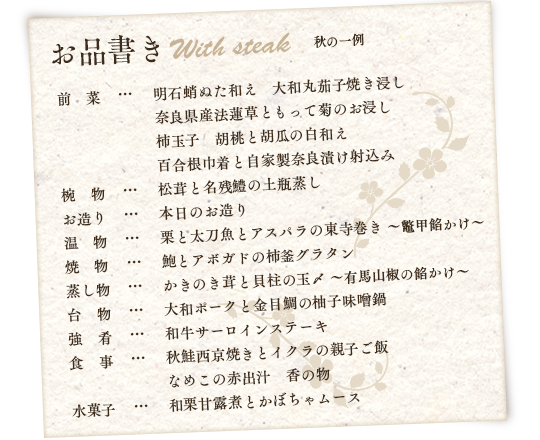 お品書き With steak 秋の一例
前菜 … 明石蛸ぬた和え 大和丸茄子焼き浸し
奈良県産法蓮草ともって菊のお浸し
柿玉子 胡桃と胡瓜の白和え
百合根巾着と自家製奈良漬け射込み
椀物 … 松茸と名残鱧の土瓶蒸し
お造り … 本日のお造り
温物 … 栗と太刀魚とアスパラの東寺巻き ～鼈甲餡かけ～
焼物 … 鮑とアボガドの柿釜グラタン
蒸し物 … かきのき茸と貝柱の玉〆 ～有馬山椒の餡かけ～
台物 … 大和ポークと金目鯛の柚子味噌鍋
強肴 … 和牛サーロインステーキ
食事 … 秋鮭西京焼きとイクラの親子ご飯
なめこの赤出汁 香の物
水菓子 … 和栗甘露煮とかぼちゃムース